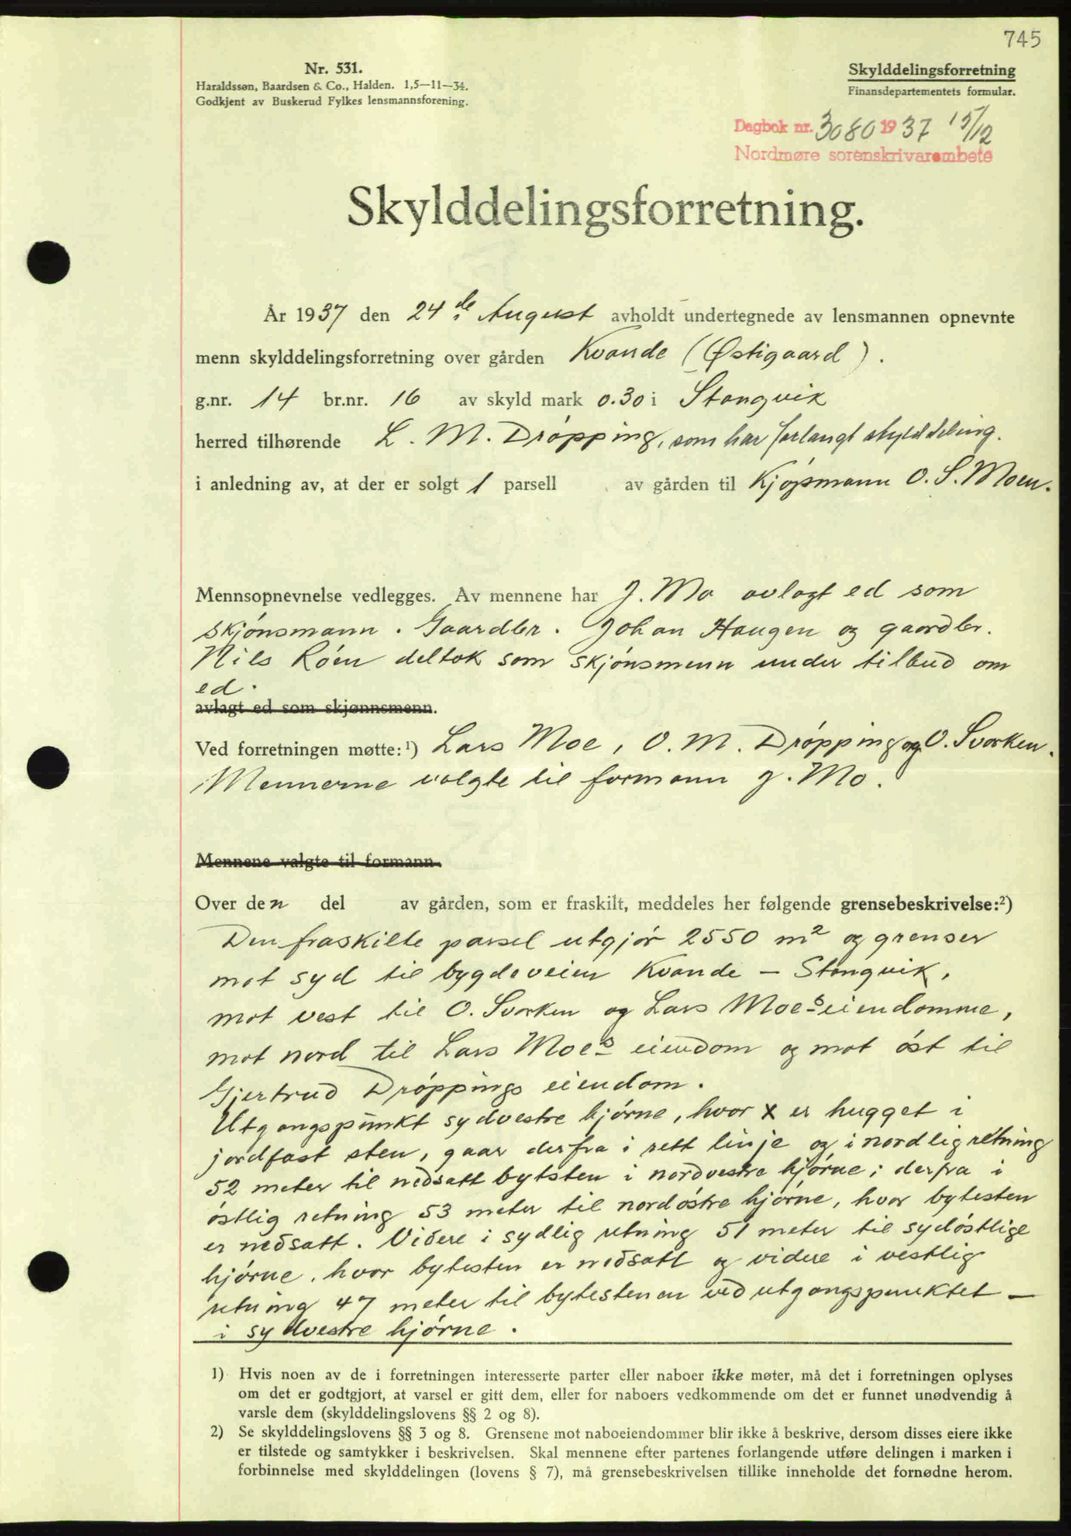 745
Nr. 531.
Haraldssøn, Baardsen & Co., Halden. 1,5—11—34.
Godkjent av Buskerud Fylkes lensmannsforening.
Skylddelingsforretning
Finansdepartementets formular.
Dagbok nr. 3080 1937 15/12
Nordmøre sorenskrivarembete
Skylddelingsforretning.
År 1937 den 24de August avholdt undertegnede av lensmannen opnevnte
menn skylddelingsforretning over gården Kvande (Østigaard).
g.nr. 14 br.nr. 16 av skyld mark 0.30 i Stangvik
herred tilhørende L. M. Drøpping, som har forlangt skylddeling.
i anledning av, at der er solgt 1 parsell av gården til Kjøpmann O. S. Moen.
Mennsopnevnelse vedlegges. Av mennene har J. Mo avlagt ed som
skjönsmann. Gaardbr. Johan Haugen og gaardbr.
Nils Röen deltok som skjönsmenn under tilbud om
ed.
avlagt ed som skjønnsmenn.
Ved forretningen møtte:¹) Lars Moe, O. M. Dröpping og O. Svorken.
Mennerne valgte til formann J. Mo.
Mennene valgte til formann.
Over den del av gården, som er fraskilt, meddeles her følgende grensebeskrivelse:²)
Den fraskilte parsel utgjör 2550 m² og grenser
mot syd til bygdeveien Kvande — Stangvik,
mot vest til O. Svorken og Lars Moes eiendomme,
mot nord til Lars Moes eiendom og mot öst til
Gjertrud Dröppings eiendom.
Utgangspunkt sydvestre hjörne, hvor x er hugget i
jordfast sten, gaar derfra i rett linje og i nordlig retning
52 meter til nedsatt bytsten i nordvestre hjörne; derfra i
östlig retning 53 meter til nordöstre hjörne, hvor bytesten
er nedsatt. Videre i sydlig retning 51 meter til sydöstlige
hjörne, hvor bytesten er nedsatt og videre i vestlig
retning 47 meter til bytestenen ved utgangspunktet —
i sydvestre hjörne.
1) Hvis noen av de i forretningen interesserte parter eller naboer ikke møter, må det i forretningen oplyses
om det er godtgjort, at varsel er gitt dem, eller for naboers vedkommende om det er funnet unødvendig å
varsle dem (skylddelingslovens §§ 2 og 8).
2) Se skylddelingslovens §§ 3 og 8. Grensene mot naboeiendommer blir ikke å beskrive, dersom disses eiere ikke
er tilstede og samtykker i beskrivelsen. Skal mennene efter partenes forlangende utføre delingen i marken i
forbinnelse med skylddelingen (lovens § 7), må grensebeskrivelsen tillike inneholde det fornødne herom.